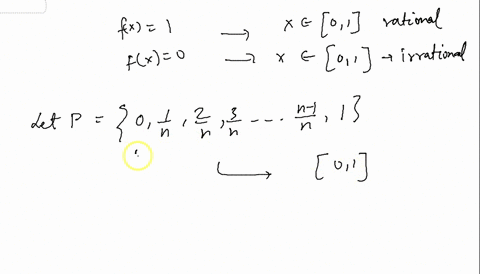 f(x) = 1 → x ∈ [0,1] rational
f(x) = 0 → x ∈ [0,1] → irrational
Let P = { 0, 1/n, 2/n, 3/n --- . n-1/n, 1 }
→ [0,1]